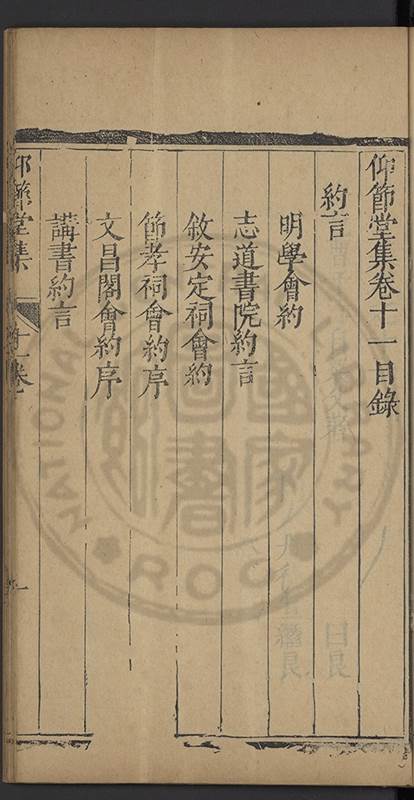 仰節堂集卷十一目錄
約言
明學會約
志道書院約言
敘安定祠會約
節孝祠會約序
文昌閣會約序
講書約言
仰節堂集